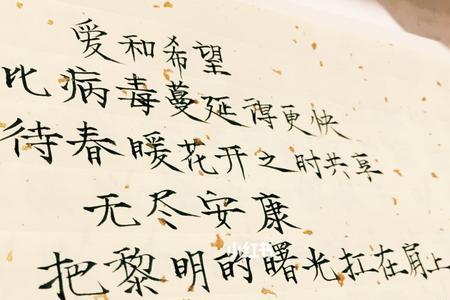 爱和希望
比病毒蔓延得更快
待春暖花开之时共享
无尽安康
小红书
把黎明的曙光扛在肩上